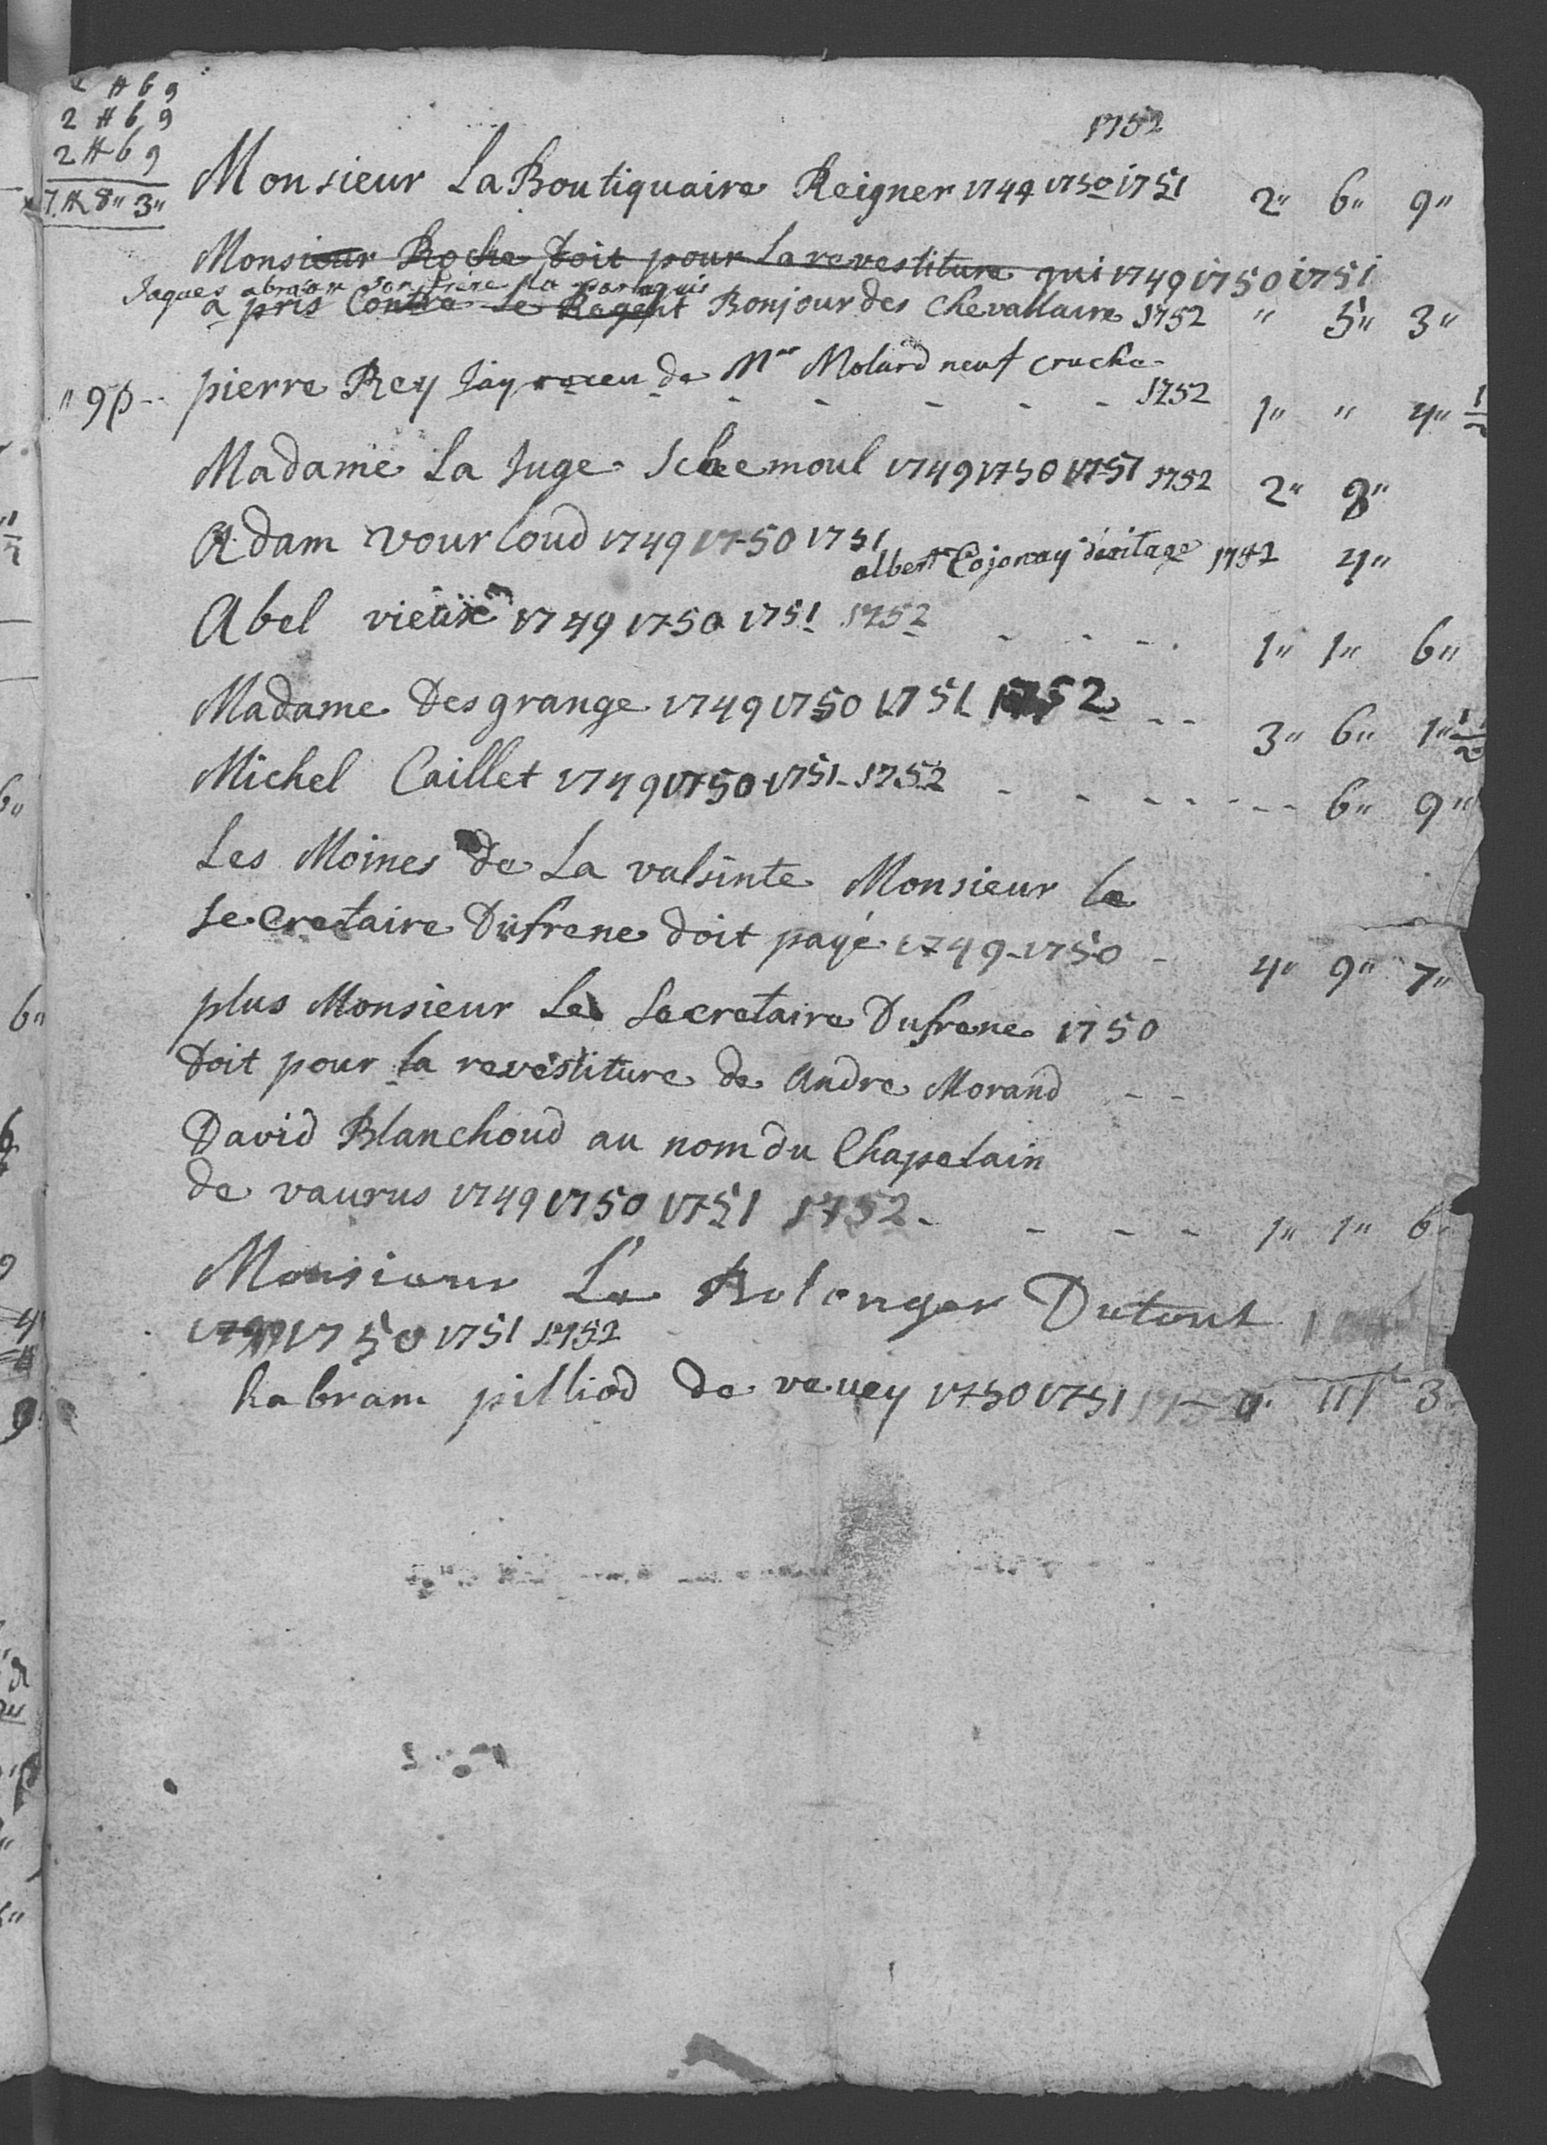 2 # 6 9
2 # 6 9
2 # 6 9
7 # 8" 3"
1752
Monsieur La Boutiquaire Reigner 1749 1750 1751 2" 6" 9"
Monsieur Roche Doit pour La revestiture qui 1749 1750 1751
Jaques abram son frere
a pris Contre Le Regent Bonjour des Chevallaire 1752 " 5" 3"
pierre Rey Jay receu de Mr Molard neuf cruche
" 9 p - - 1752 1" " 4" 1/2
Madame La Juge Schemoul 1749 1750 1751 1752 2" 8"
Adam vourloud 1749 1750 1751
albert Cojonay 1752 4"
Abel vieux 1749 1750 1751 1752 - - - - 1" 1" 6"
Madame Desgrange 1749 1750 1751 1752 - - - 3" 6" 1" 1/2
Michel Caillet 1749 1750 1751 1752 - - - - - - - 6" 9"
Les Moines de La valsinte Monsieur le
Secretaire Dufrene doit payé 1749 - 1750 - 4" 9" 7"
plus Monsieur Le Secretaire Dufrene 1750
Doit pour la revestiture de Andre Morand - -
David Blanchoud au nom du Chapelain
de vaurus 1749 1750 1751 1752 - - - - 1" 1" 6"
Monsieur Le Bolenger Dutout
1749 1750 1751 1752
habram pilliod de vevey 1750 1751 3